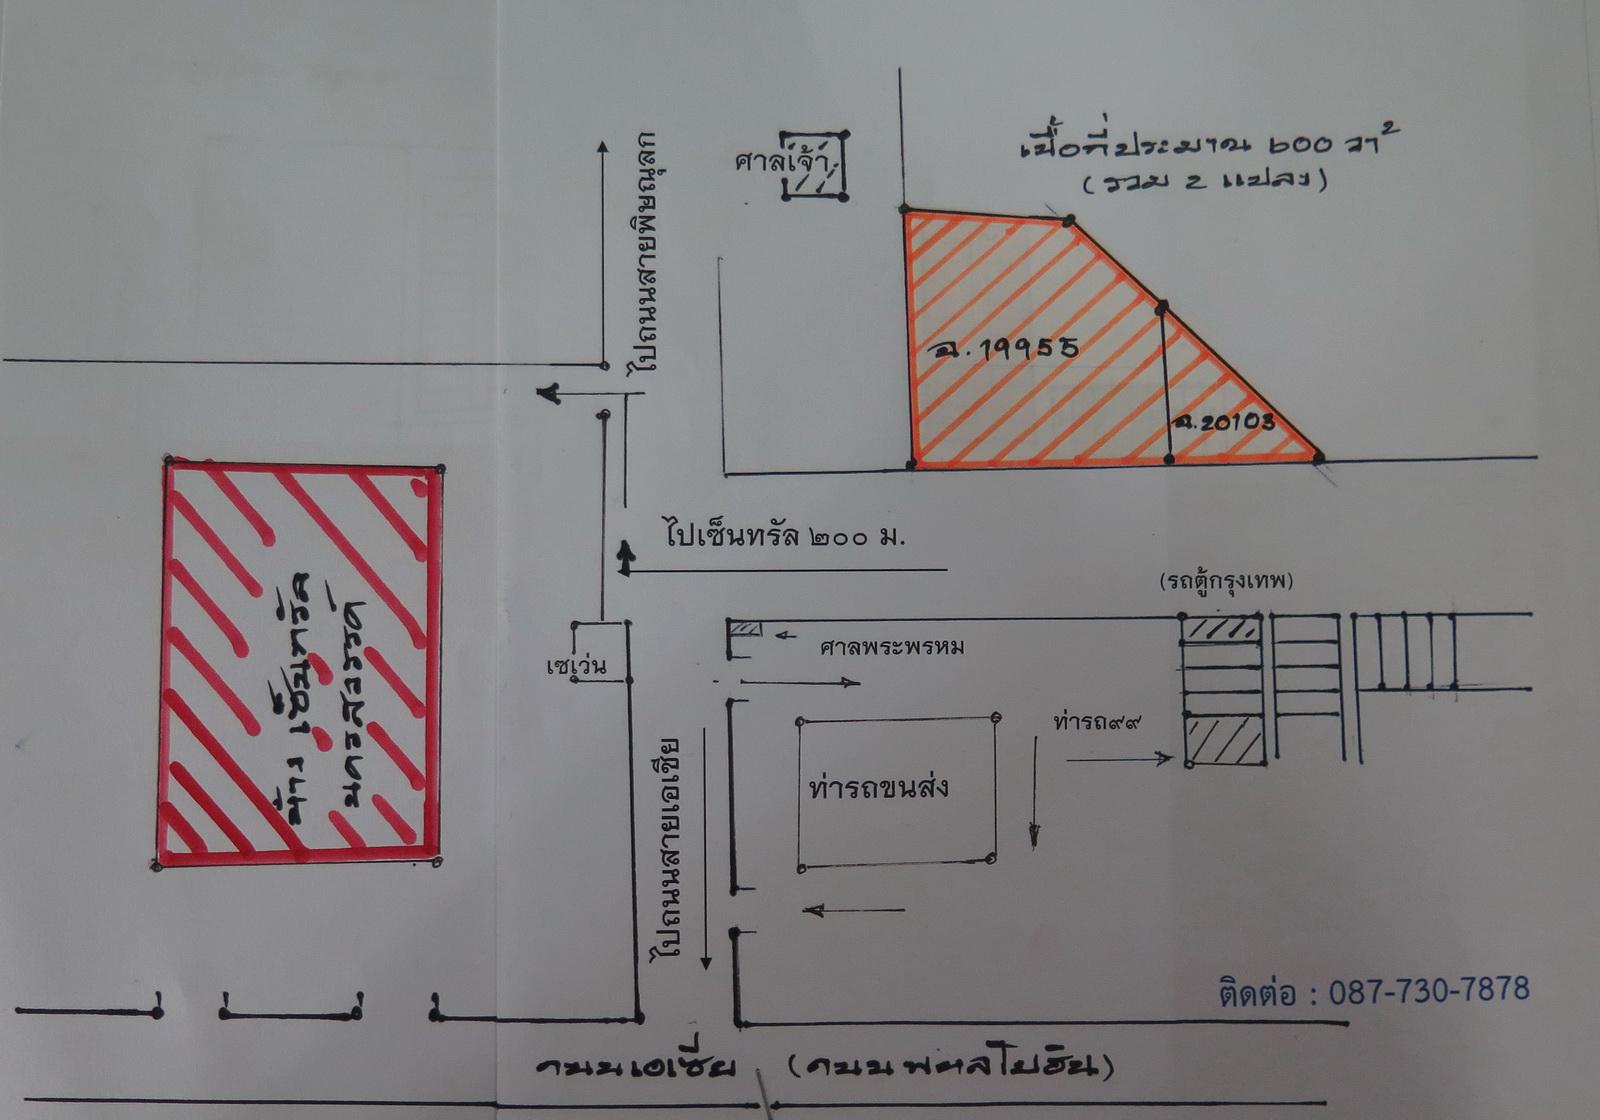 เนื้อที่ประมาณ ๖๐๐ วา²
(รวม 2 แปลง)
ศาลเจ้า
ไปถนนสายพิษณุลก
ฉ.19955
ฉ.20103
ไปเซ็นทรัล ๒๐๐ ม.
(รถตู้กรุงเทพ)
ศาลพระพรหม
เซเว่น
ห้าง เซ็นทรัล
นครสวรรค์
ท่ารถ๙๙
ท่ารถขนส่ง
ไปถนนสายเอเชีย
ติดต่อ : 087-730-7878
ถนนเอเซีย (ถนนพหลโยธิน)